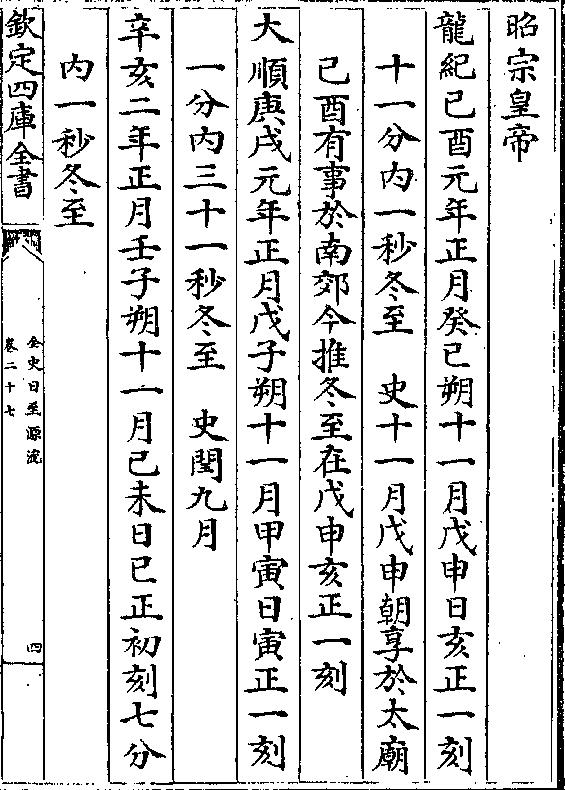 昭宗皇帝
龍紀己酉元年正月癸巳朔十一月戊申日亥正一刻
十一分內一秒冬至　史十一月戊申朝享於太廟
己酉有事於南郊今推冬至在戊申亥正一刻
大順庚戌元年正月戊子朔十一月甲寅日寅正一刻
一分內三十一秒冬至　史閏九月
辛亥二年正月壬子朔十一月己未日巳正初刻七分
內一秒冬至
欽定四庫全書
全史日至源流
卷二十七
四